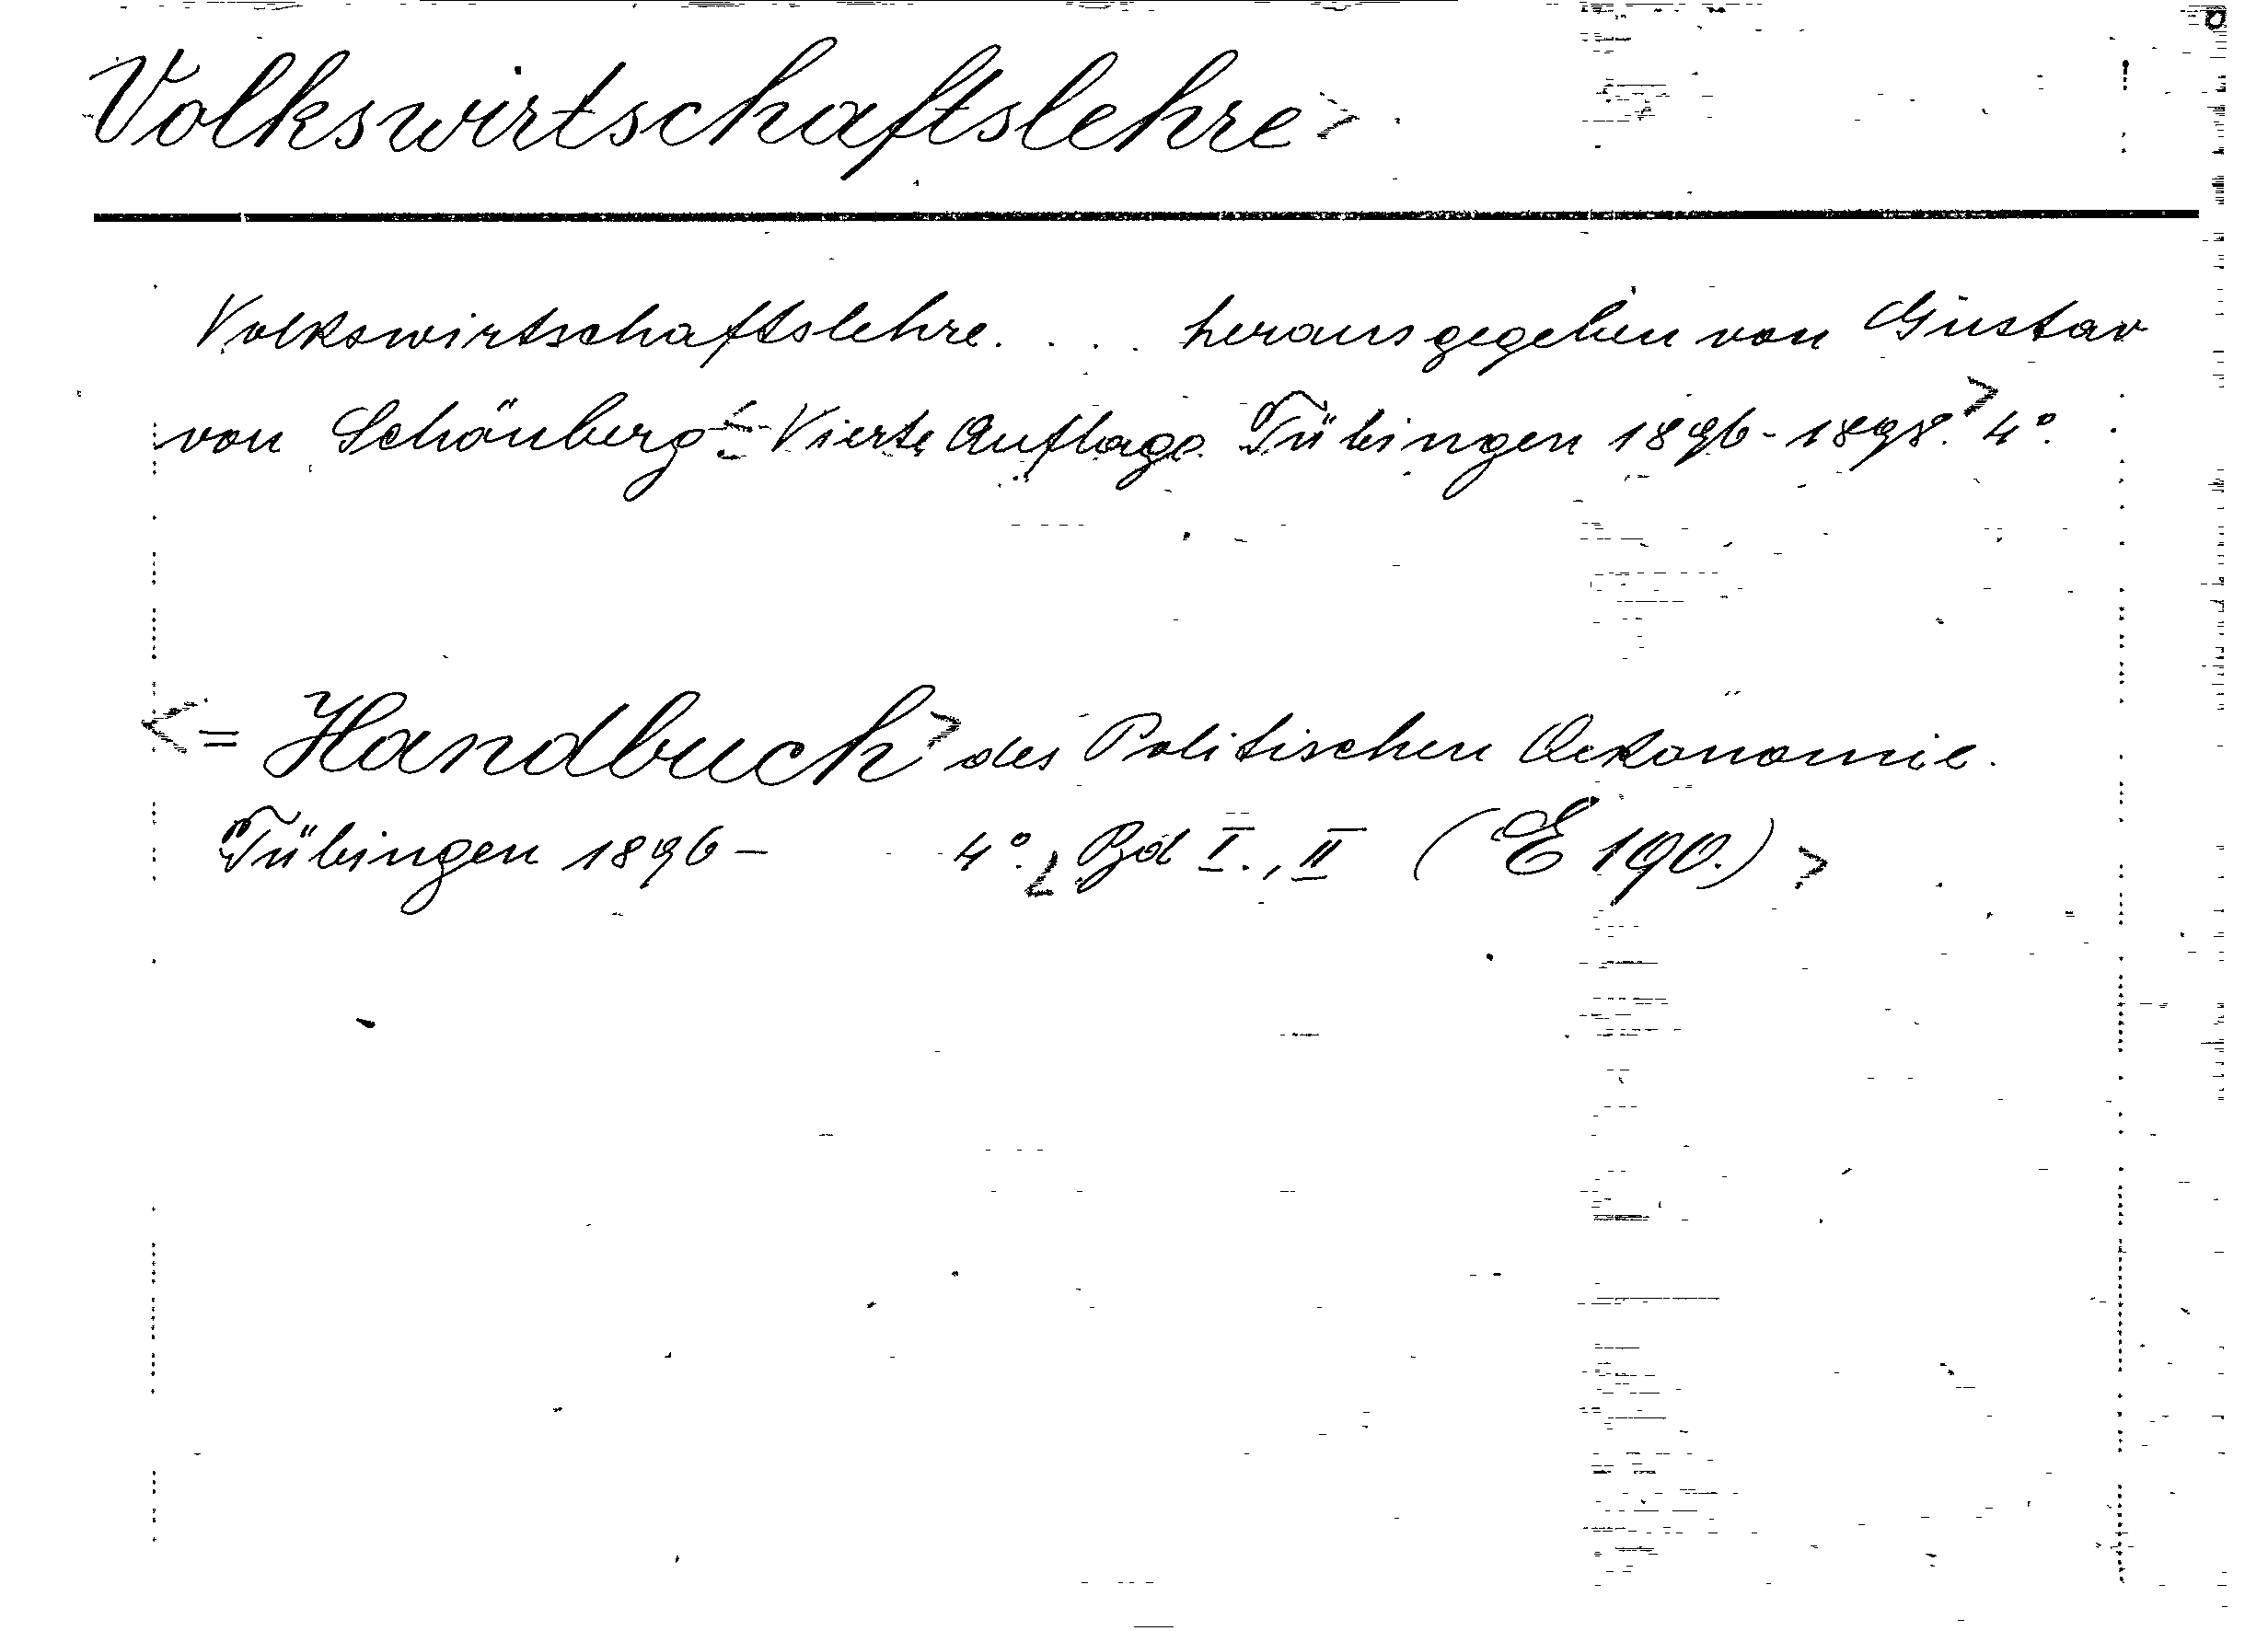 Volkswirtschaftslehre>
Volkswirtschaftslehre. . . . herausgegeben von Gustav
von Schönberg <- Vierte Auflage. Tübingen 1896-1898.> 4°.
<= Handbuch> des Politischen Oekonomie.
Tübingen 1896 — 4°. < Bd I., II (E 190.) >